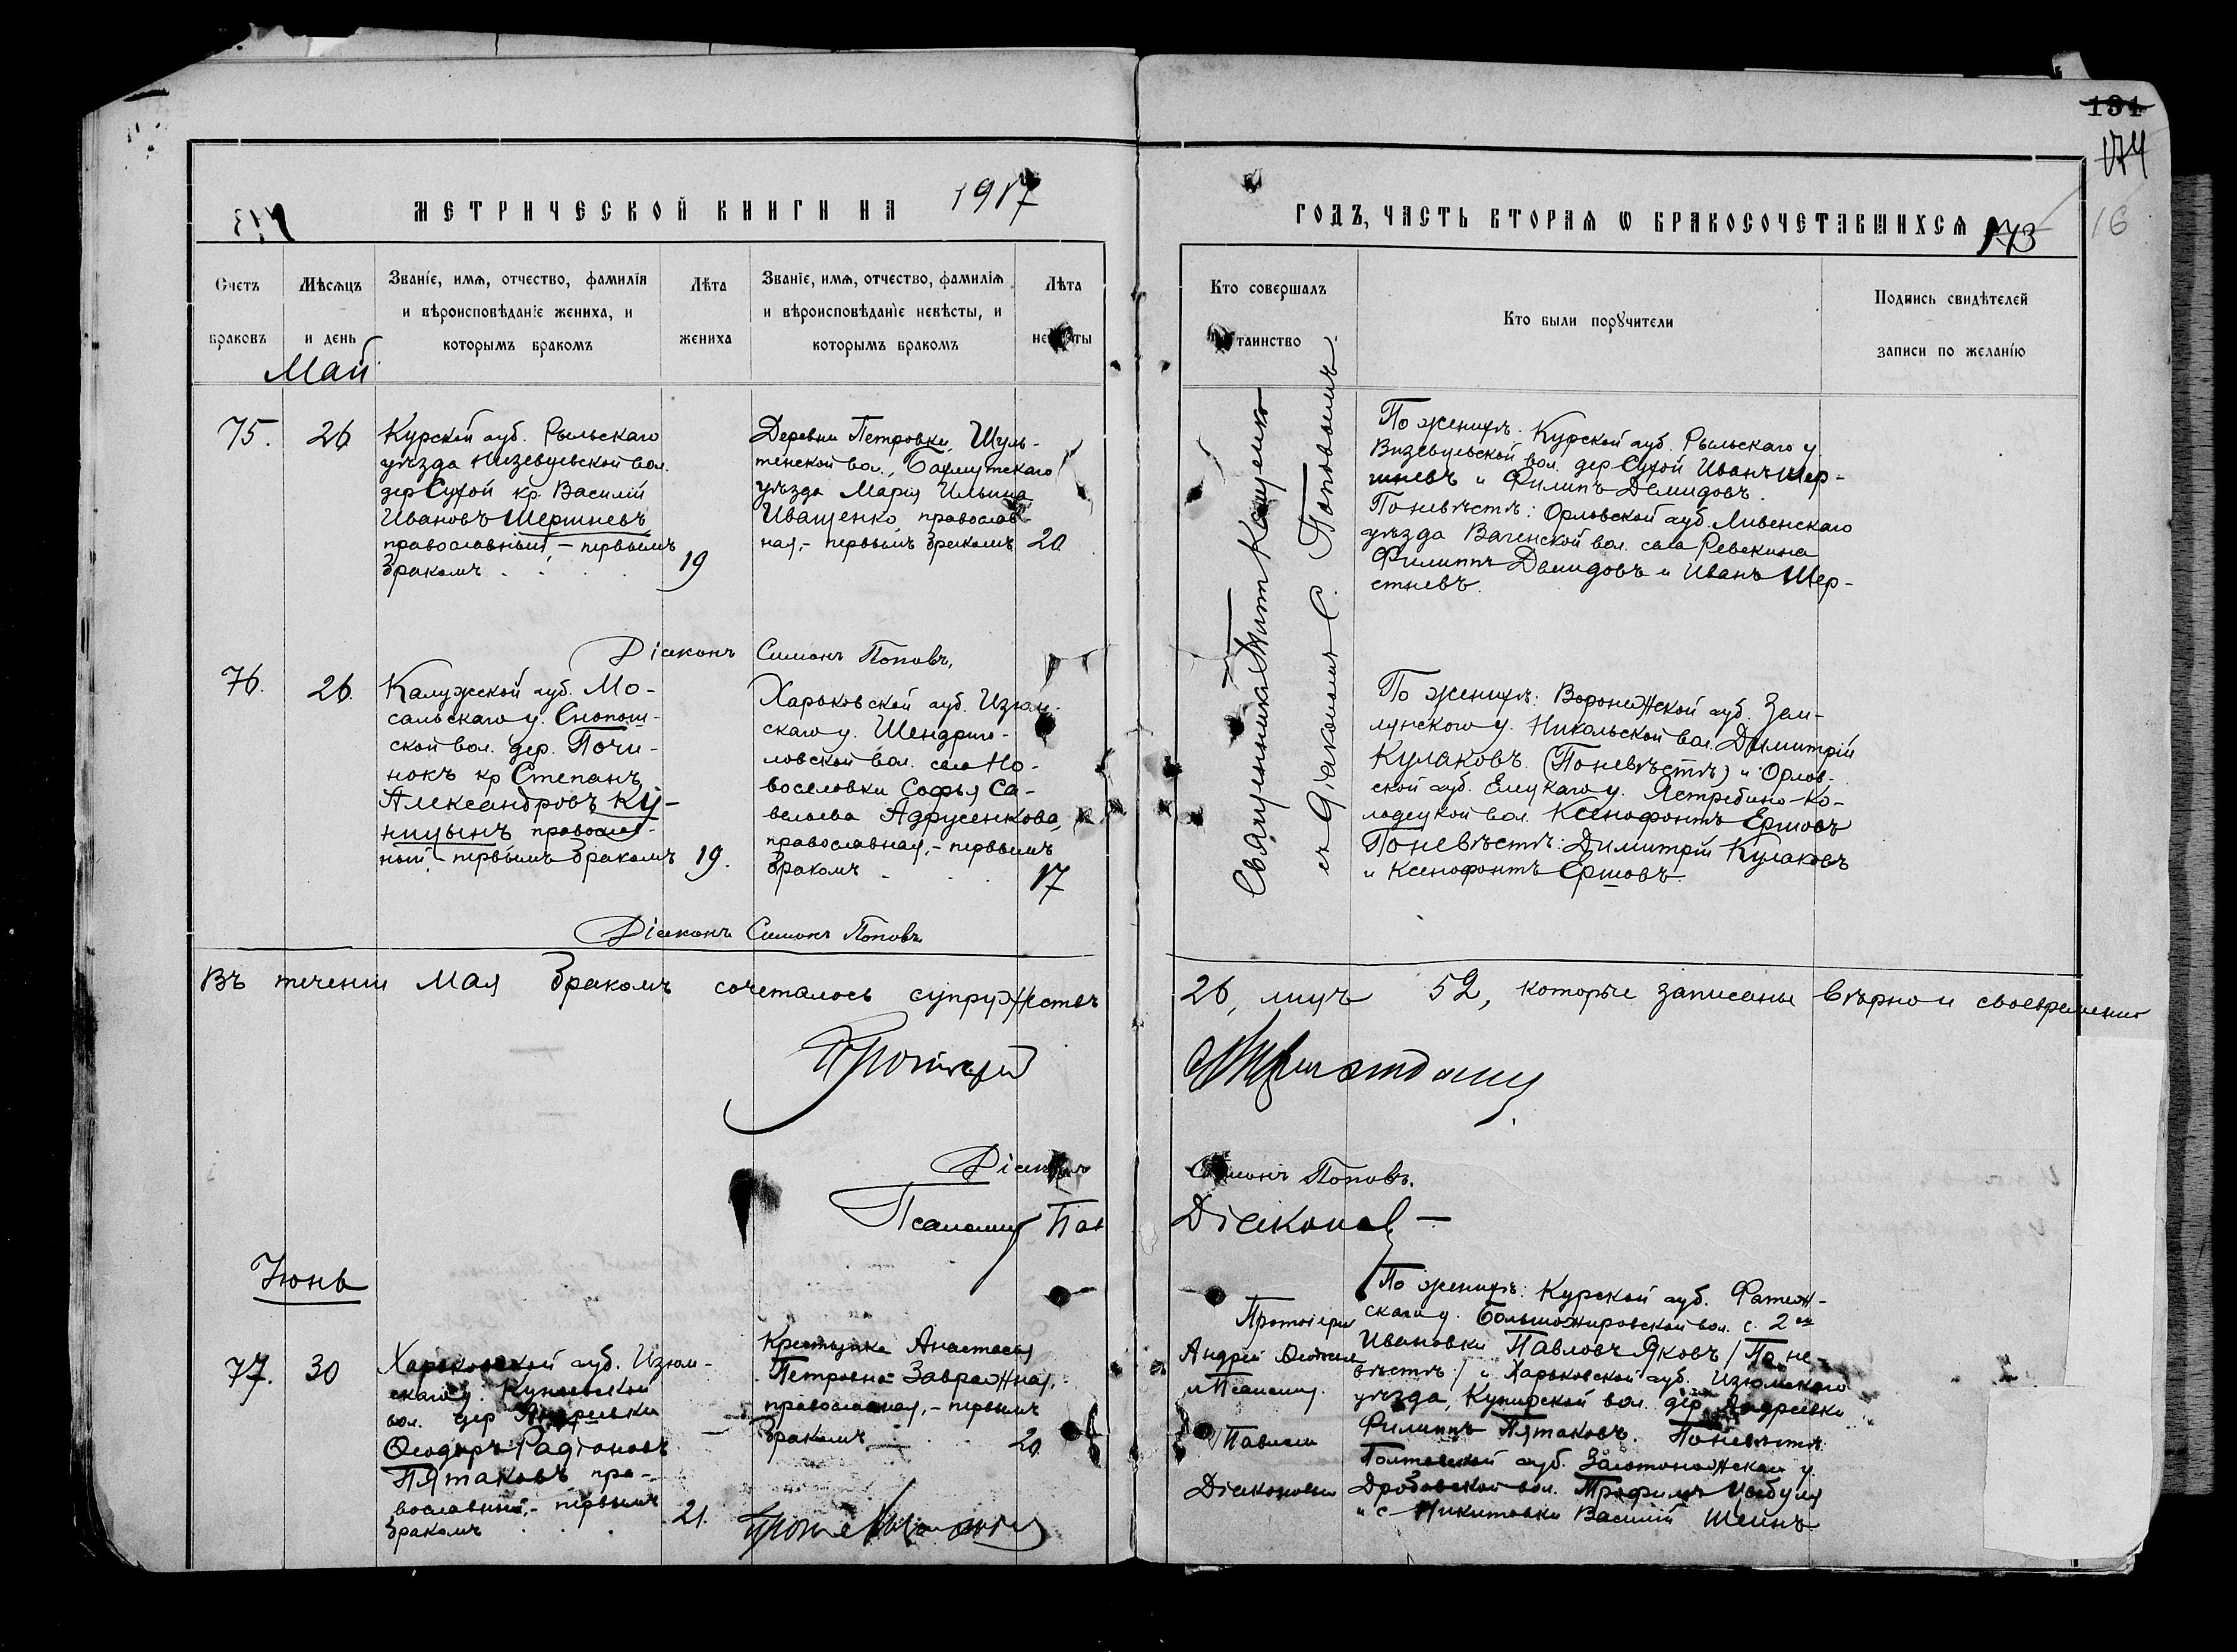 134
174
16
МЕТРИЧЕСКОЙ КНИГИ НА 1917
ГОДЪ, ЧАСТЬ ВТОРАЯ Ѡ БРАКОСОЧЕТАВШИХСЯ 173
Счетъ
браковъ
Мѣсяцъ
и день
Званіе, имя, отчество, фамилія
и вѣроисповѣданіе жениха, и
которымъ бракомъ
Лѣта
жениха
Званіе, имя, отчество, фамилія
и вѣроисповѣданіе невѣсты, и
которымъ бракомъ
Лѣта
Кто совершалъ
таинство
Кто были поручители
Подпись свидѣтелей
записи по желанію
Май
75.
26
Курской губ. Рыльскаго
уѣзда вол.
дер Сухой кр. Василій
Ивановъ Шерстневъ
православный, – первымъ
бракомъ
19
Деревни Петровки, Шуль-
тенской вол., Бахмутскаго
уѣзда Марія Ильина
Иващенко, православ
ная, – первымъ бракомъ
20
Священникъ Тит Кащенко
съ Діакономъ С. Поповымъ.
По женихѣ: Курской губ. Рыльскаго у.
вол. дер Сухой Иванъ Шер-
стневъ и Филипъ Демидовъ.
По невѣстѣ: Орловской губ. Ливенскаго
уѣзда вол. села Ревякина
Филиппъ Демидовъ и Иванъ Шер-
стневъ.
Діаконъ Симонъ Поповъ,
76.
26.
Калужской губ. Мо-
сальскаго у. Снопот-
ской вол. дер. Почи-
нокъ кр Степанъ
Александровъ Ку-
ницынъ православ-
ный, – первымъ бракомъ
19.
Харьковской губ. Изюм-
скаго у. Шендриго-
ловской вол. села Но-
воселовки Софья Са-
вельева Адрусенкова,
православная, – первымъ
бракомъ
17
По женихѣ: Воронежской губ. Зем-
лянскаго у. Никольской вол. Димитрій
Кулаковъ (По невѣстѣ) и Орлов-
ской губ. Елецкаго у. Ястребино-Ко-
лодецкой вол. Ксенофонтъ Ершовъ
По невѣстѣ: Димитрій Кулаковъ
и Ксенофонтъ Ершовъ.
Діаконъ Симонъ Поповъ
Въ теченіи Мая бракомъ сочеталось супружествъ 26, лицъ 52, которые записаны вѣрно и своевременно
Протоіерей
Діаконъ Симонъ Поповъ.
Псаломщ Діаконов
Іюнь
77.
30
Харьковской губ. Изюм-
скаго у.
вол. дер Андреевки
Ѳеодоръ Радіоновъ
Пятаковъ пра-
вославный, – первымъ
бракомъ
21.
Крестьянка Анастасія
Петровна Завражная,
православная, – первымъ
бракомъ
20
Протоіерей
Андрей
и Псаломщ.
Діаконовъ
По женихѣ: Курской губ. Фатеж-
скаго у. Большежировской вол. с. 2ой
Ивановки Павловъ Яковъ / По не-
вѣстѣ / и Харьковской губ. Изюмскаго
уѣзда, вол. дер. Андреевки
Филиппъ Пятаковъ. По невѣстѣ
Полтавской губ. Золотоношскаго у.
Дробовской вол. Трофимъ Цыбуля
и с Никитовки Василій Шеинъ